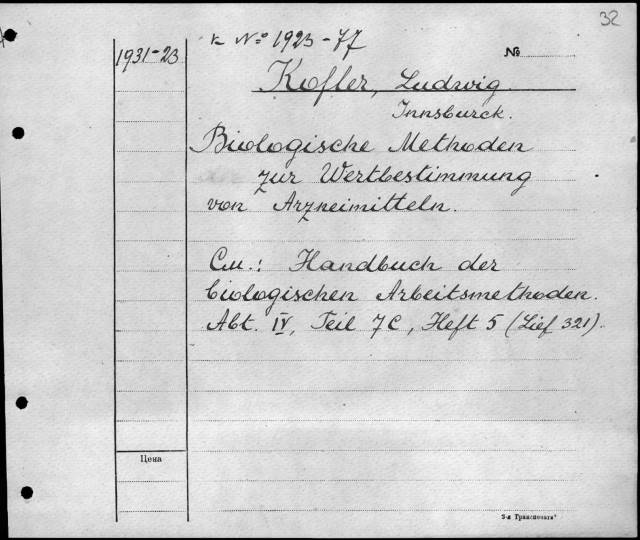 32
к № 1923-77
1931-23
№
Kofler, Ludwig
Innsburck.
Biologische Methoden
zur Wertbestimmung
von Arzneimitteln.
См.: Handbuch der
biologischen Arbeitsmethoden.
Abt. IV, Teil 7C, Heft 5 (Lief 321).
Цена
"Транспечати"